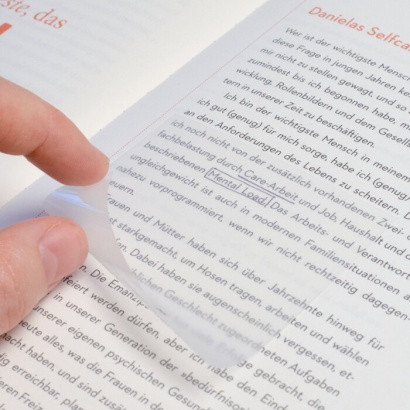 ste, das
Danielas Selfca
Wer ist der wichtigste Mensch
diese Frage in jungen Jahren
mir nicht zu stellen gewagt, und so
zumindest bis ich begonnen habe,
wicklung, Rollenbildern und dem Gesell
tern in unserer Zeit zu beschäftigen.
Ich bin der wichtigste Mensch in meinem
ich gut (genug) für mich sorge, habe ich (genug)
an den Anforderungen des Lebens zu scheitern.
ich noch nicht von der zusätzlich vorhandenen Zwei-
fachbelastung durch Care-Arbeit und Job, Haushalt und
beschriebenen Mental Load. Das Arbeits- und Verantwor
ungleichgewicht ist auch in modernen Familiensituationen
nahezu vorprogrammiert, wenn wir nicht rechtzeitig dagegen-
euern.
rauen und Mütter haben sich über Jahrzehnte hinweg für
t starkgemacht, um Hosen tragen, arbeiten und wählen
fen. Dabei haben sie augenscheinlich vergessen, et-
chlichen Geschlecht zugeordneten Aufgaben
en. Die Emanz
efeiert werden dürfen, aber
in unserer Generation der »bedürfnis
unserer eigenen psychischen Gesun
heute alles, was die Frauen in de
macht haben, und sind zusä
dig erreichbar,
eren Frei